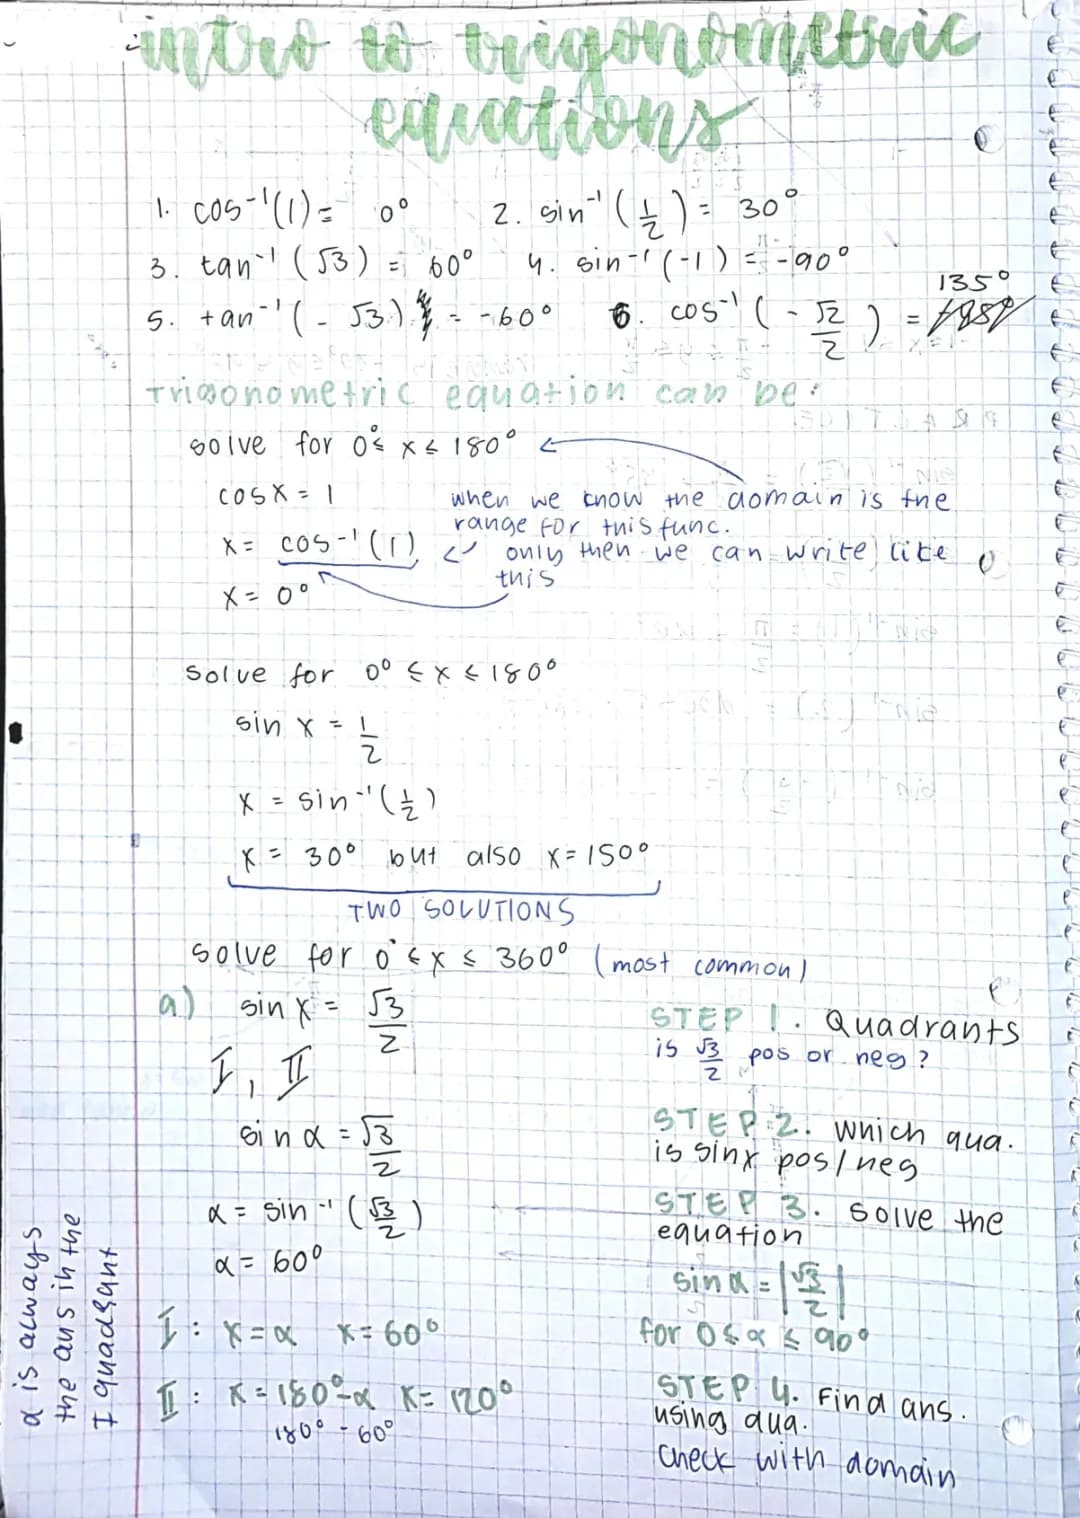 intro to trigonometric
equations
1. cos⁻¹(1) = 0° 2. sin⁻¹(1/2) = 30°
3. tan⁻¹(√3) = 60° 4. sin⁻¹(-1) = -90°
5. tan⁻¹(-√3) = -60° 6. cos⁻¹(-√2/2) = 135°
Trigonometric equation can be:
solve for 0° ≤ x ≤ 180°
cos x = 1
when we know the domain is the
range for this func.
x = cos⁻¹(1)
only then we can write like
this
x = 0°
Solve for 0° ≤ x ≤ 180°
sin x = 1/2
x = sin⁻¹(1/2)
x = 30° but also x = 150°
TWO SOLUTIONS
solve for 0° ≤ x ≤ 360° (most common)
a) sin x = √3/2
I, II
sin α = √3/2
α = sin⁻¹(√3/2)
α = 60°
I: x = α x = 60°
II: x = 180° - α x = 120°
180° - 60°
STEP 1. Quadrants
is √3/2 pos or neg?
STEP 2. Which qua.
is sinx pos/neg
STEP 3. solve the
equation
sin α = |√3/2|
for 0 ≤ α ≤ 90°
STEP 4. Find ans.
using qua.
Check with domain
α is always
the ans in the
I quadrant